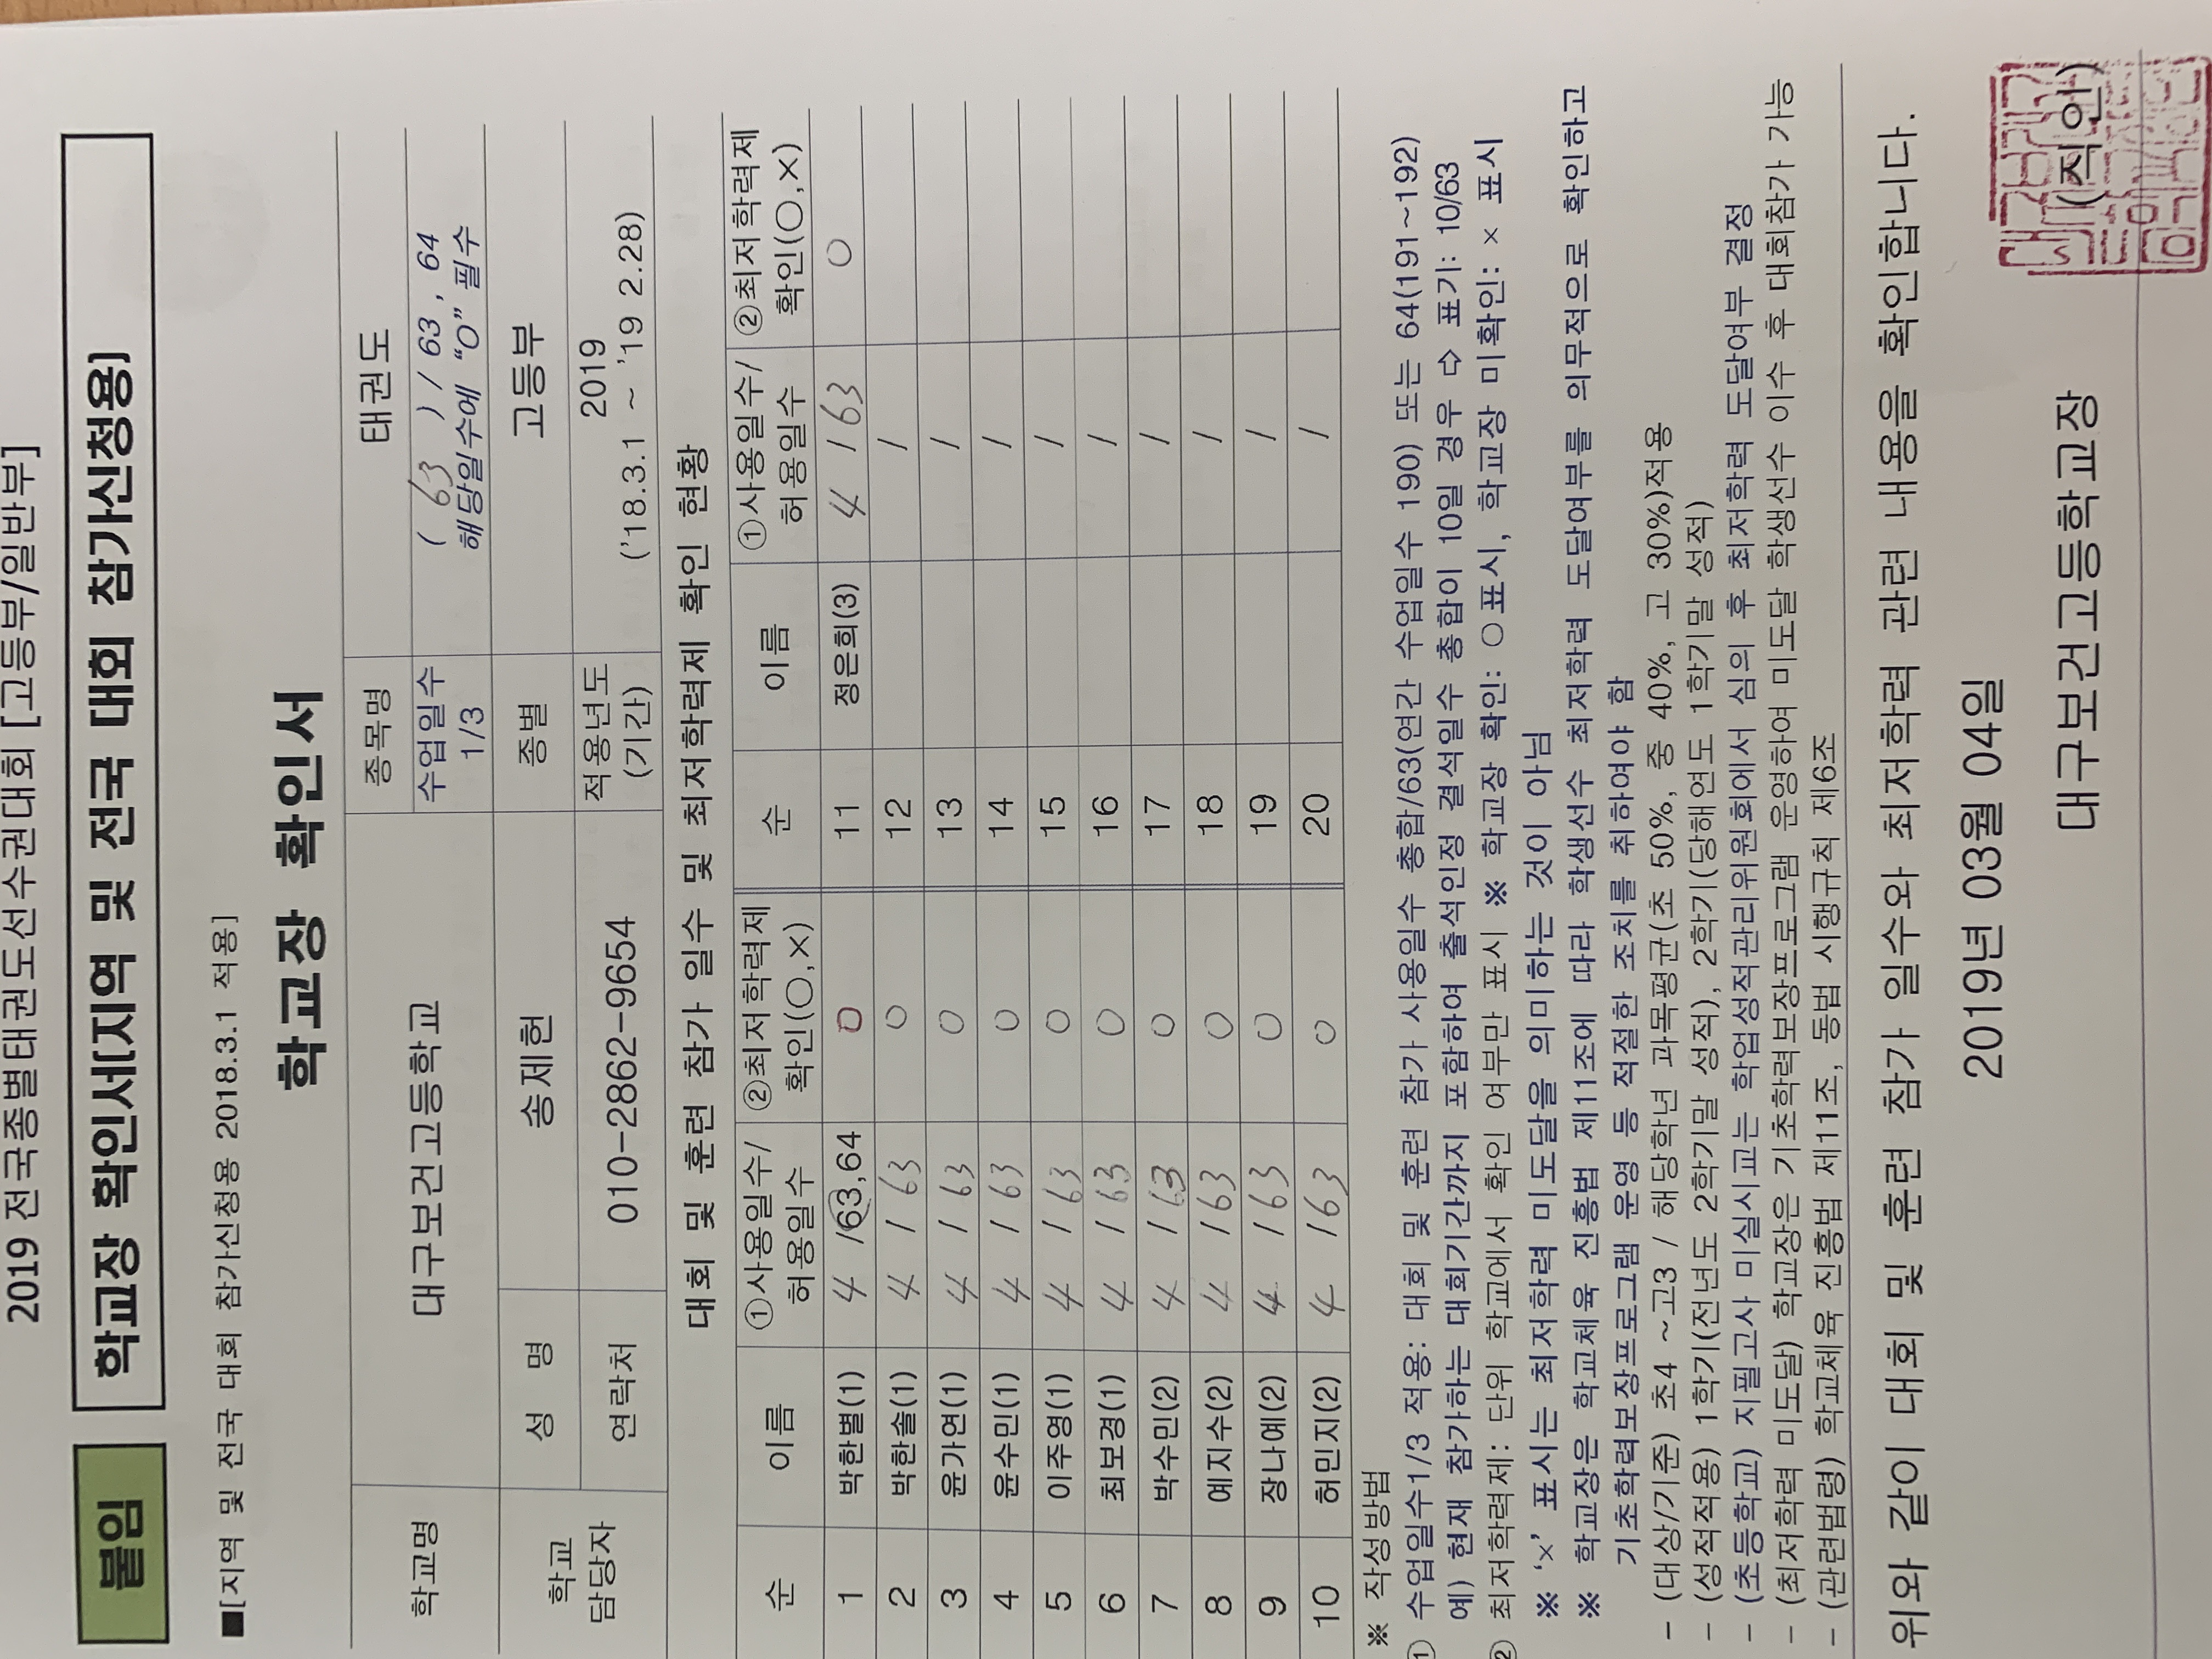 2019 전국종별태권도선수권대회 [고등부/일반부]
붙임 학교장 확인서[지역 및 전국 대회 참가신청용]
■[지역 및 전국 대회 참가신청용 2018.3.1 적용]
학교장 확인서
학교명 대구보건고등학교 종목명 태권도
수업일수 1/3 ( 63 ) / 63, 64
해당일수에 “O” 필수
학교 담당자 성 명 송제헌 종별 고등부
연락처 010-2862-9654 적용년도 (기간) 2019
('18.3.1 ~ '19 2.28)
대회 및 훈련 참가 일수 및 최저학력제 확인 현황
순 이름 ①사용일수/허용일수 ②최저학력제 확인(○,×) 순 이름 ①사용일수/허용일수 ②최저학력제 확인(○,×)
1 박한별(1) 4 /63,64 ○ 11 정은희(3) 4 / 63 ○
2 박한솔(1) 4 / 63 ○ 12 /
3 윤가연(1) 4 / 63 ○ 13 /
4 윤수민(1) 4 / 63 ○ 14 /
5 이주영(1) 4 / 63 ○ 15 /
6 최보경(1) 4 / 63 ○ 16 /
7 박수민(2) 4 / 63 ○ 17 /
8 예지수(2) 4 / 63 ○ 18 /
9 장나예(2) 4 / 63 ○ 19 /
10 허민지(2) 4 / 63 ○ 20 /
※ 작성방법
① 수업일수1/3 적용: 대회 및 훈련 참가 사용일수 총합/63(연간 수업일수 190) 또는 64(191~192)
예) 현재 참가하는 대회기간까지 포함하여 출석인정 결석일수 총합이 10일 경우 ⇨ 표기: 10/63
② 최저학력제: 단위 학교에서 확인 여부만 표시 ※ 학교장 확인: ○표시, 학교장 미확인: × 표시
※ ‘×’ 표시는 최저학력 미도달을 의미하는 것이 아님
※ 학교장은 학교체육 진흥법 제11조에 따라 학생선수 최저학력 도달여부를 의무적으로 확인하고
기초학력보장프로그램 운영 등 적절한 조치를 취하여야 함
- (대상/기준) 초4 ~고3 / 해당학년 과목평균(초 50%, 중 40%, 고 30%)적용
- (성적적용) 1학기(전년도 2학기말 성적), 2학기(당해연도 1학기말 성적)
- (초등학교) 지필고사 미실시교는 학업성적관리위원회에서 심의 후 최저학력 도달여부 결정
- (최저학력 미도달) 학교장은 기초학력보장프로그램 운영하여 미도달 학생선수 이수 후 대회참가 가능
- (관련법령) 학교체육 진흥법 제11조, 동법 시행규칙 제6조
위와 같이 대회 및 훈련 참가 일수와 최저학력 관련 내용을 확인합니다.
2019년 03월 04일
대구보건고등학교장 (직인)